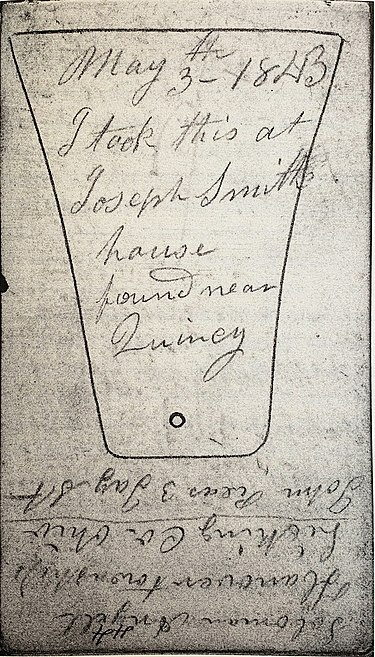 May 3th 1843
I took this at
Joseph Smiths
house
found near
Quincy
Soloman
Hanover township
Licking Co. Ohio
John 3